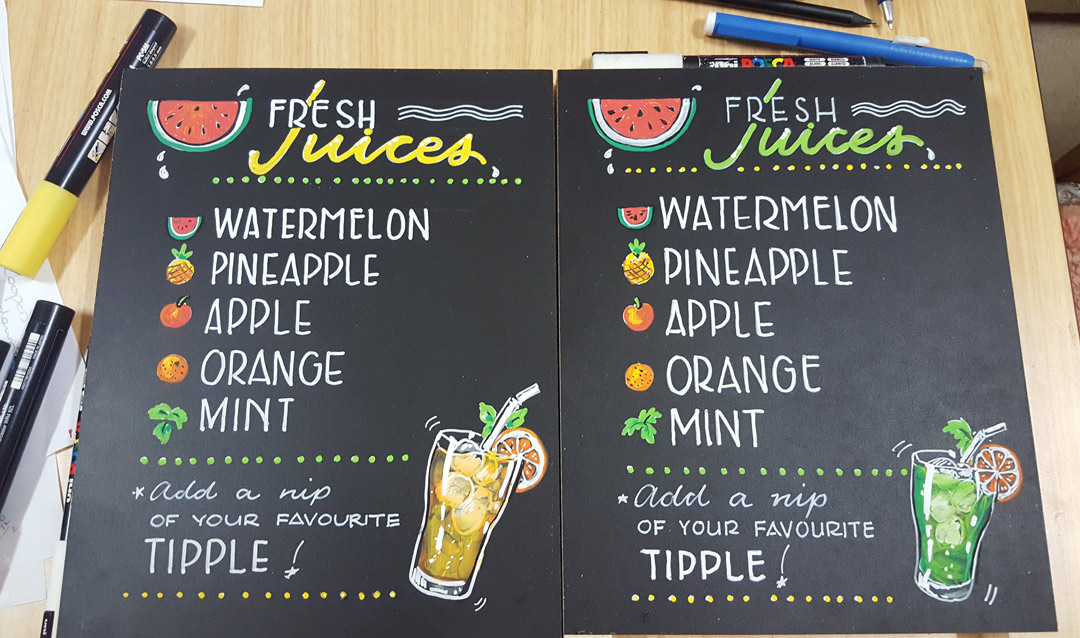 FRESH
Juices
WATERMELON
PINEAPPLE
APPLE
ORANGE
MINT
*Add a nip
OF YOUR FAVOURITE
TIPPLE!
FRESH
Juices
WATERMELON
PINEAPPLE
APPLE
ORANGE
MINT
*Add a nip
OF YOUR FAVOURITE
TIPPLE!
POSCA
WWW.POSCA.COM